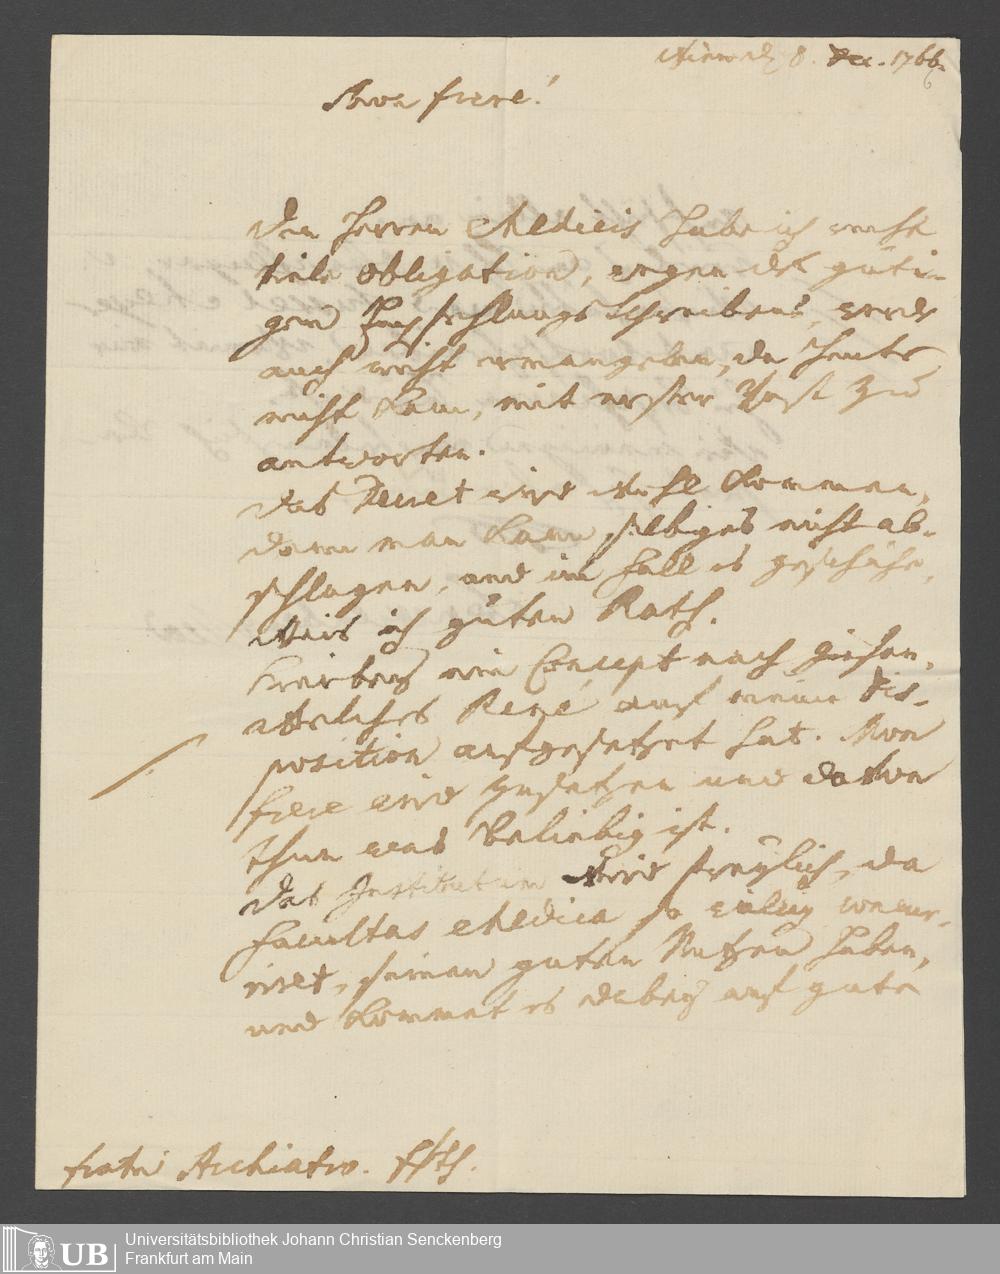 8. Dec. 1766.
Mon frere!
Den Herren Medicis habe ich recht
viele obligation, wegen des güti-
gen Empfehlungs Schreibens, werde
auch nicht ermangelen, da heute
nicht kan, mit erster Post zu
antworten.
Das Decret wird wohl kommen,
dann man kann selbiges nicht ab-
schlagen, und im fall es geschähe,
weis ich guten Rath.
hierbey ein Concept nach
welches René auf meine Dis-
position aufgesetzet hat. Mon
frere wird zusetzen und davon
thun was beliebig ist.
Das Institutum wird freylich, da
facultas Medica so
niret, seinen guten Nutzen haben,
und kommet es dabey auf gute
fratri Archiatro.
UB Universitätsbibliothek Johann Christian Senckenberg
Frankfurt am Main